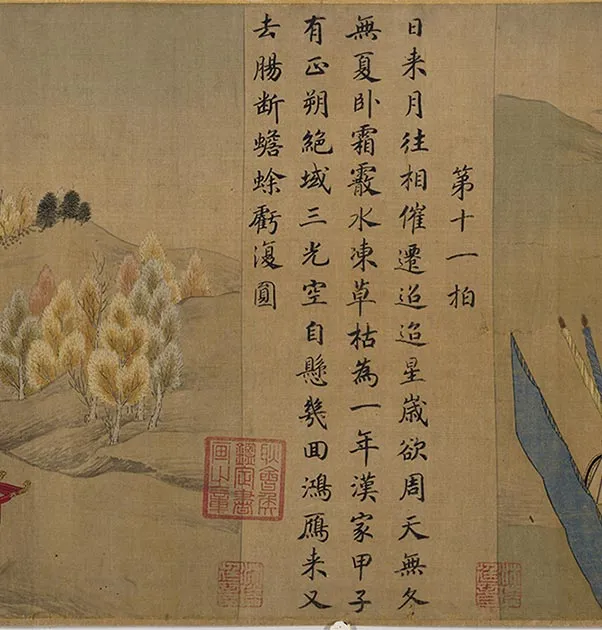 第十一拍
日来月往相催遷迢迢星歲欲周天無冬
無夏卧霜霰水凍草枯為一年漢家甲子
有正朔絶域三光空自懸幾囬鴻鴈来又
去腸斷蟾蜍虧復圓
耿會侯
鑑定書
畫之章